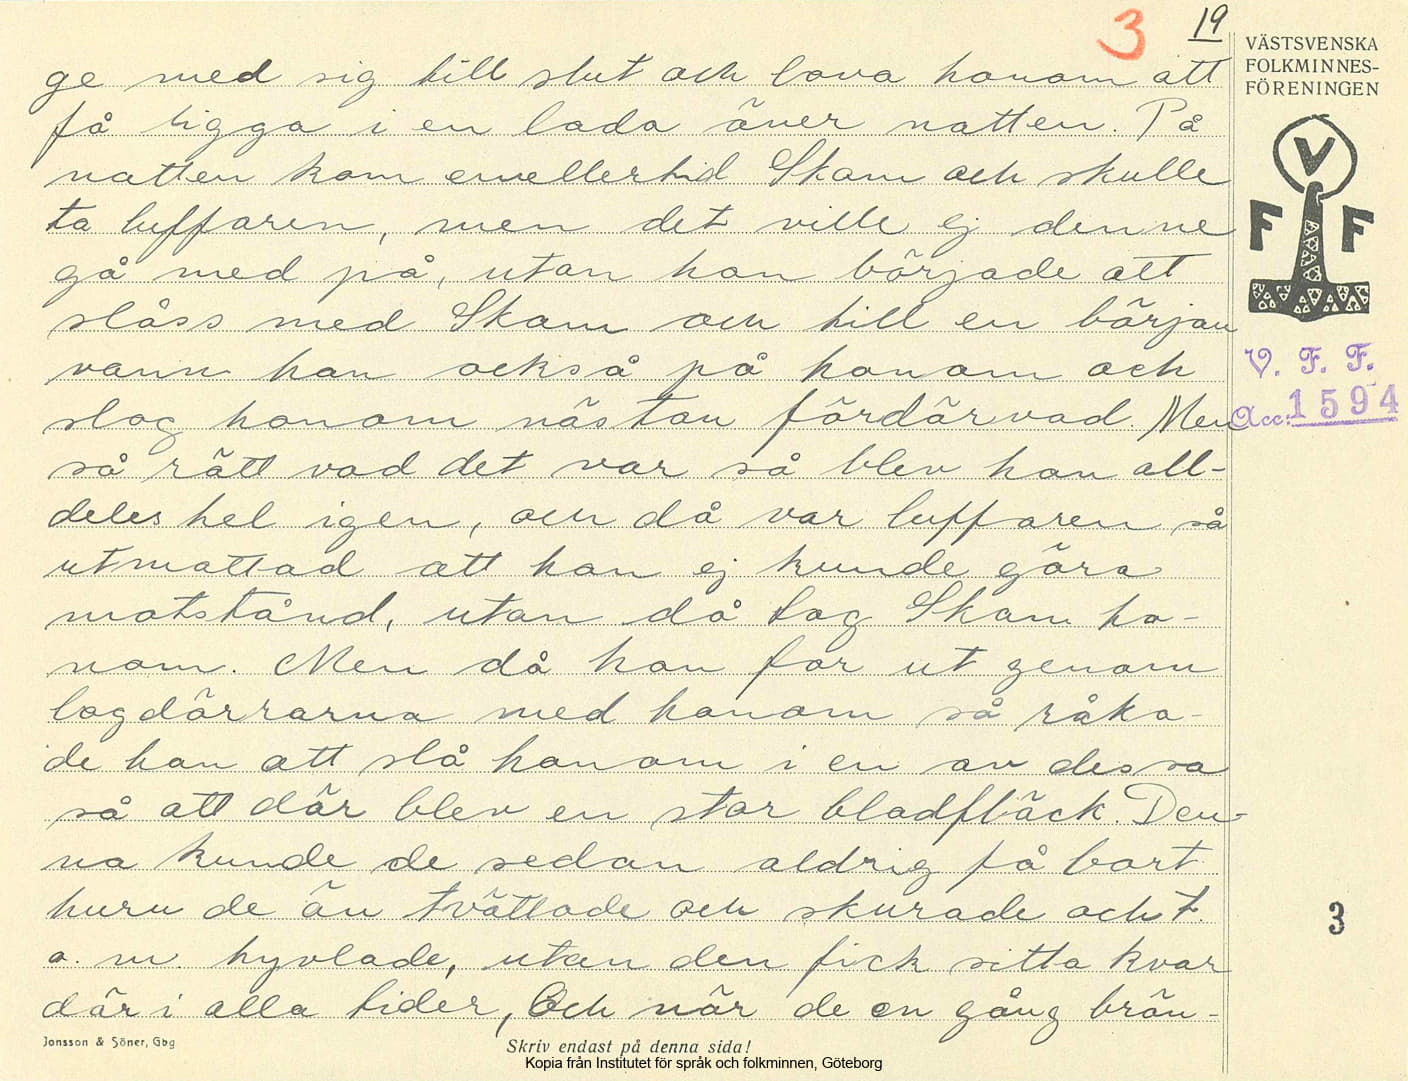 3 19
VÄSTSVENSKA
FOLKMINNES-
FÖRENINGEN
ge med sig till slut och lova honom att
få ligga i en lada över natten. På
natten kom emellertid Skam och skulle
ta luffaren, men det ville ej denne
gå med på, utan han började att
slåss med Skam och till en början
vann han också på honom och
slog honom nästan fördärvad. Men
så rätt vad det var så blev han all-
deles hel igen, och då var luffaren så
utmattad att han ej kunde göra
motstånd, utan då tog Skam ho-
nom. Men då han for ut genom
logdörrarna med honom så råka-
de han att slå honom i en av dessa
så att där blev en stor blodfläck. Den-
na kunde de sedan aldrig få bort
huru de än tvättade och skurade och t.
o. m. hyvlade, utan den fick sitta kvar
där i alla tider, Och när de en gång brän-
V
F F
V. F. F.
Acc: 1594
3
Jonsson & Söner, Gbg
Skriv endast på denna sida!
Kopia från Institutet för språk och folkminnen, Göteborg